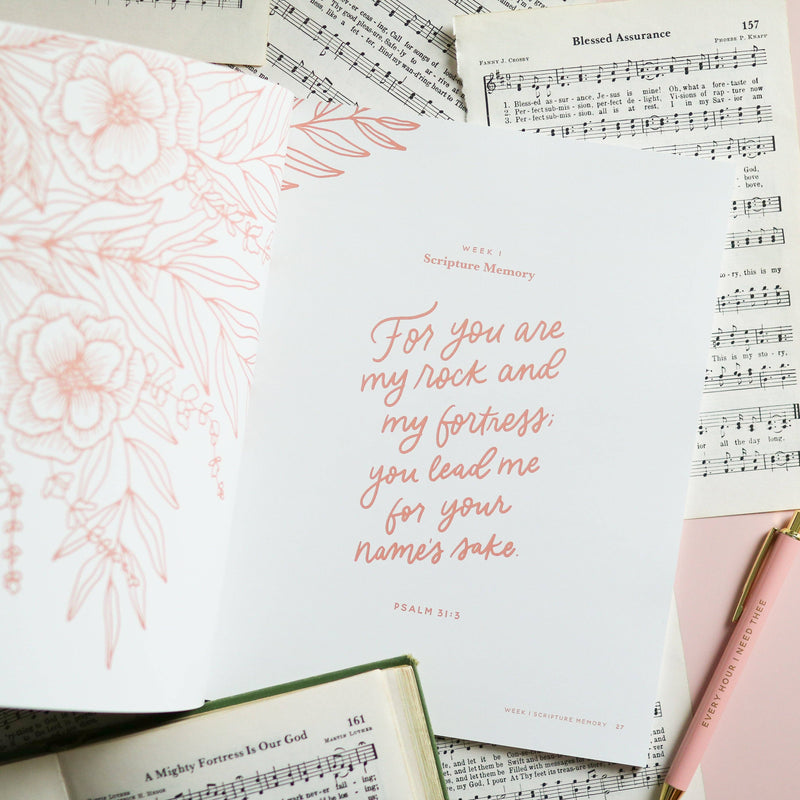 ever ceas-ing, Call for songs of
Thy good pleas-ure, Safe-ly to ar-rive at
like a fet-ter, Bind my wand'ring heart to Thee
157
Blessed Assurance
FANNY J. CROSBY
PHOEBE P. KNAPP
1. Bless-ed as-sur-ance, Je-sus is mine! Oh, what a fore-taste of
2. Per-fect sub-mis-sion, per-fect de-light, Vi-sions of rap-ture now
3. Per-fect sub-mis-sion, all is at rest, I in my Sav-ior am
God,
bove
bove,
ry, this is my
This is my sto-ry,
all the day long.
WEEK 1
Scripture Memory
For you are
my rock and
my fortress;
you lead me
for your
name's sake.
PSALM 31:3
WEEK 1 SCRIPTURE MEMORY 27
EVERY HOUR I NEED THEE
161
A Mighty Fortress Is Our God
MARTIN LUTHER
nev-er fail-ing;
and let it be
and let them be Filled with messages
my God, I pour At Thy feet its treas-ure